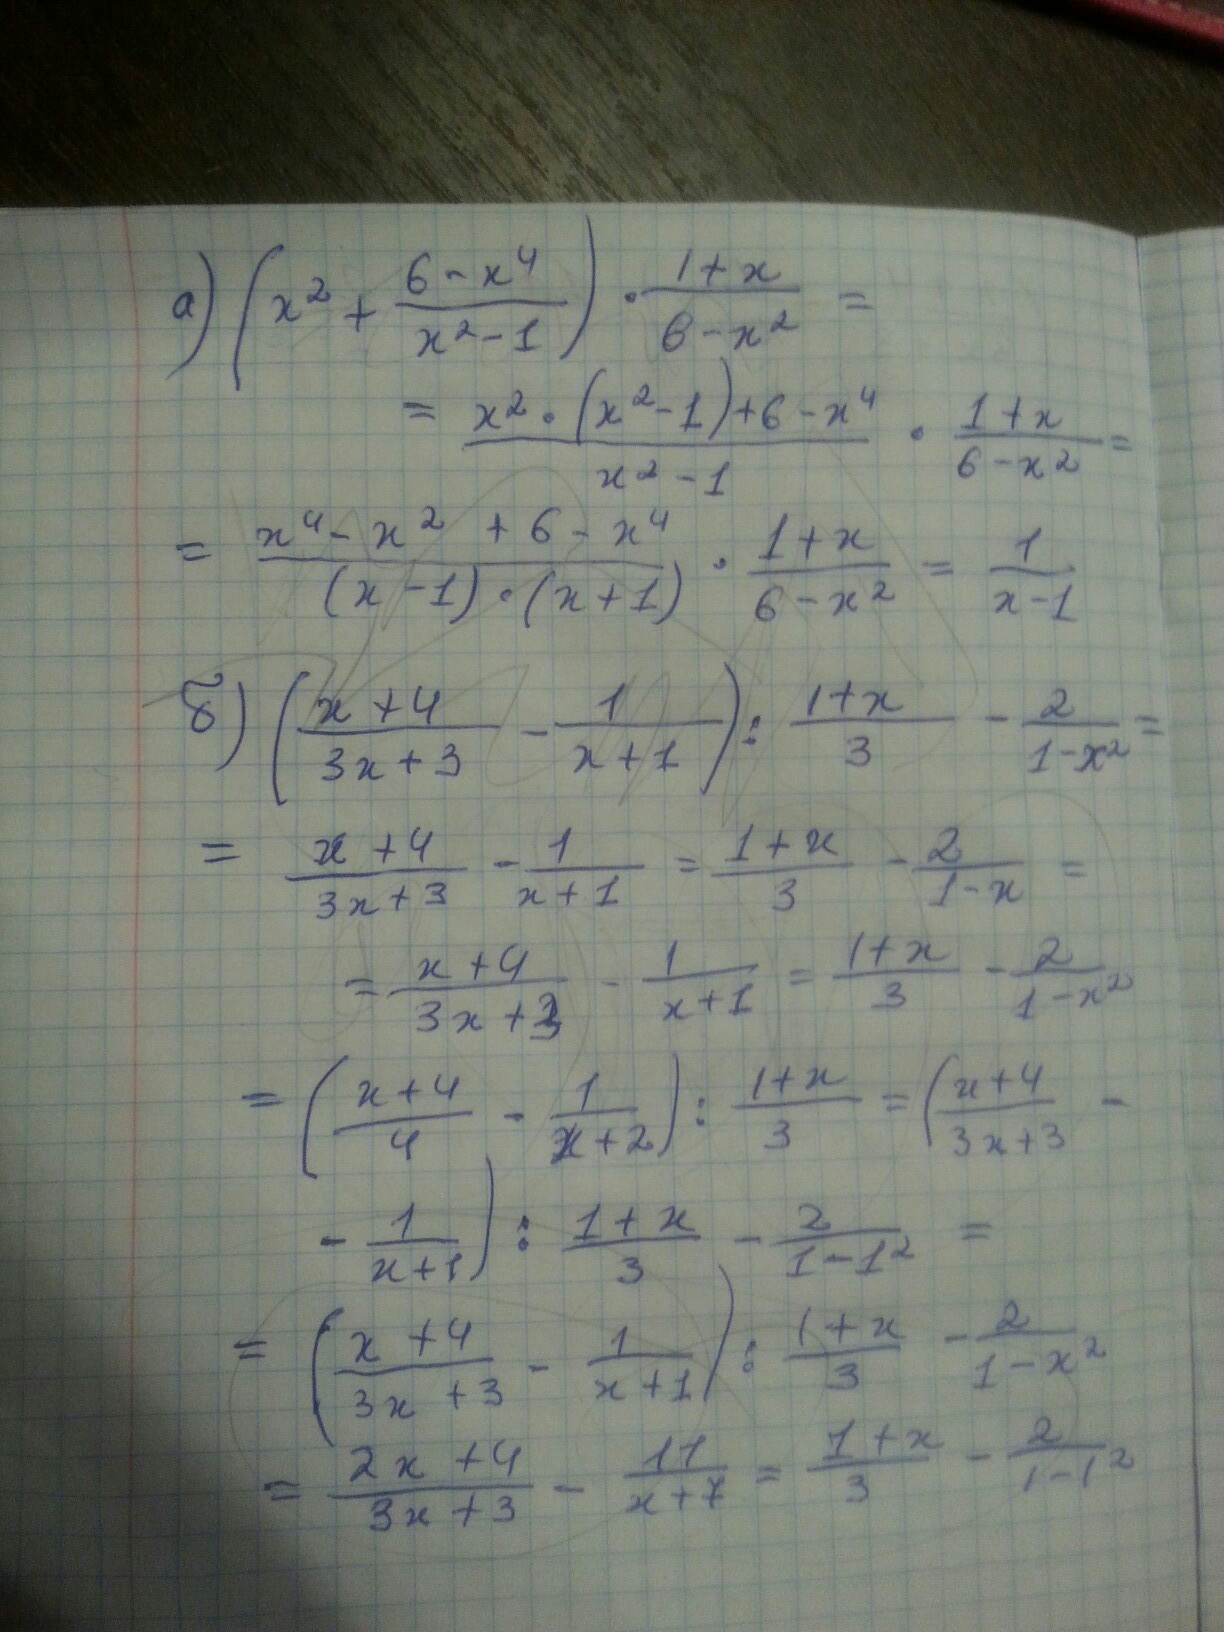 а) (x² + (6 - x⁴)/(x² - 1)) · (1 + x)/(6 - x²) =
= (x² · (x² - 1) + 6 - x⁴)/(x² - 1) · (1 + x)/(6 - x²) =
= (x⁴ - x² + 6 - x⁴)/((x - 1) · (x + 1)) · (1 + x)/(6 - x²) = 1/(x - 1)
б) ((x + 4)/(3x + 3) - 1/(x + 1)) : (1 + x)/3 - 2/(1 - x²) =
= (x + 4)/(3x + 3) - 1/(x + 1) = (1 + x)/3 - 2/(1 - x) =
= (x + 4)/(3x + 3) - 1/(x + 1) = (1 + x)/3 - 2/(1 - x²)
= ((x + 4)/4 - 1/(x + 2)) : (1 + x)/3 = ((x + 4)/(3x + 3) -
- 1/(x + 1)) : (1 + x)/3 - 2/(1 - 1²) =
= ((x + 4)/(3x + 3) - 1/(x + 1)) : (1 + x)/3 - 2/(1 - x²)
= (2x + 4)/(3x + 3) - 11/(x + 7) = (1 + x)/3 - 2/(1 - 1²)